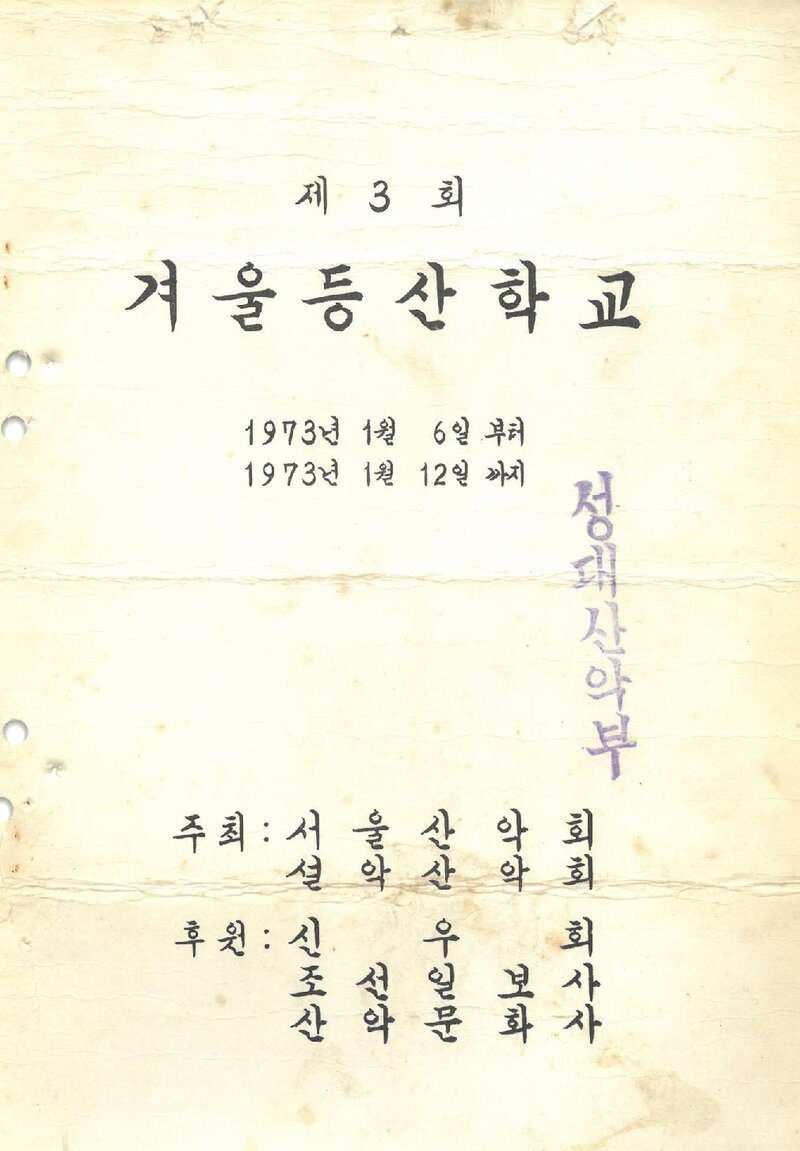 제 3 회
겨울등산학교
1973년 1월 6일 부터
1973년 1월 12일 까지
성대산악부
주최 : 서울산악회
설악산악회
후원 : 신우회
조선일보사
산악문화사